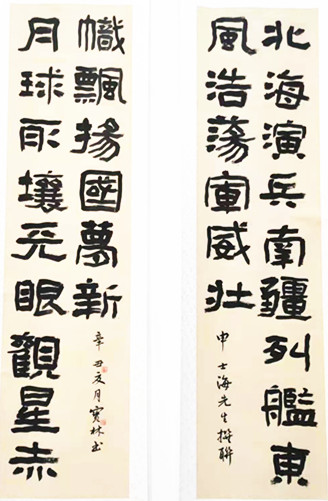 北海演兵南疆列艦東
風浩蕩軍威壯
申士海先生撰聯
月球取壤天眼觀星赤
幟飄揚國夢新
辛丑夏月寶林书